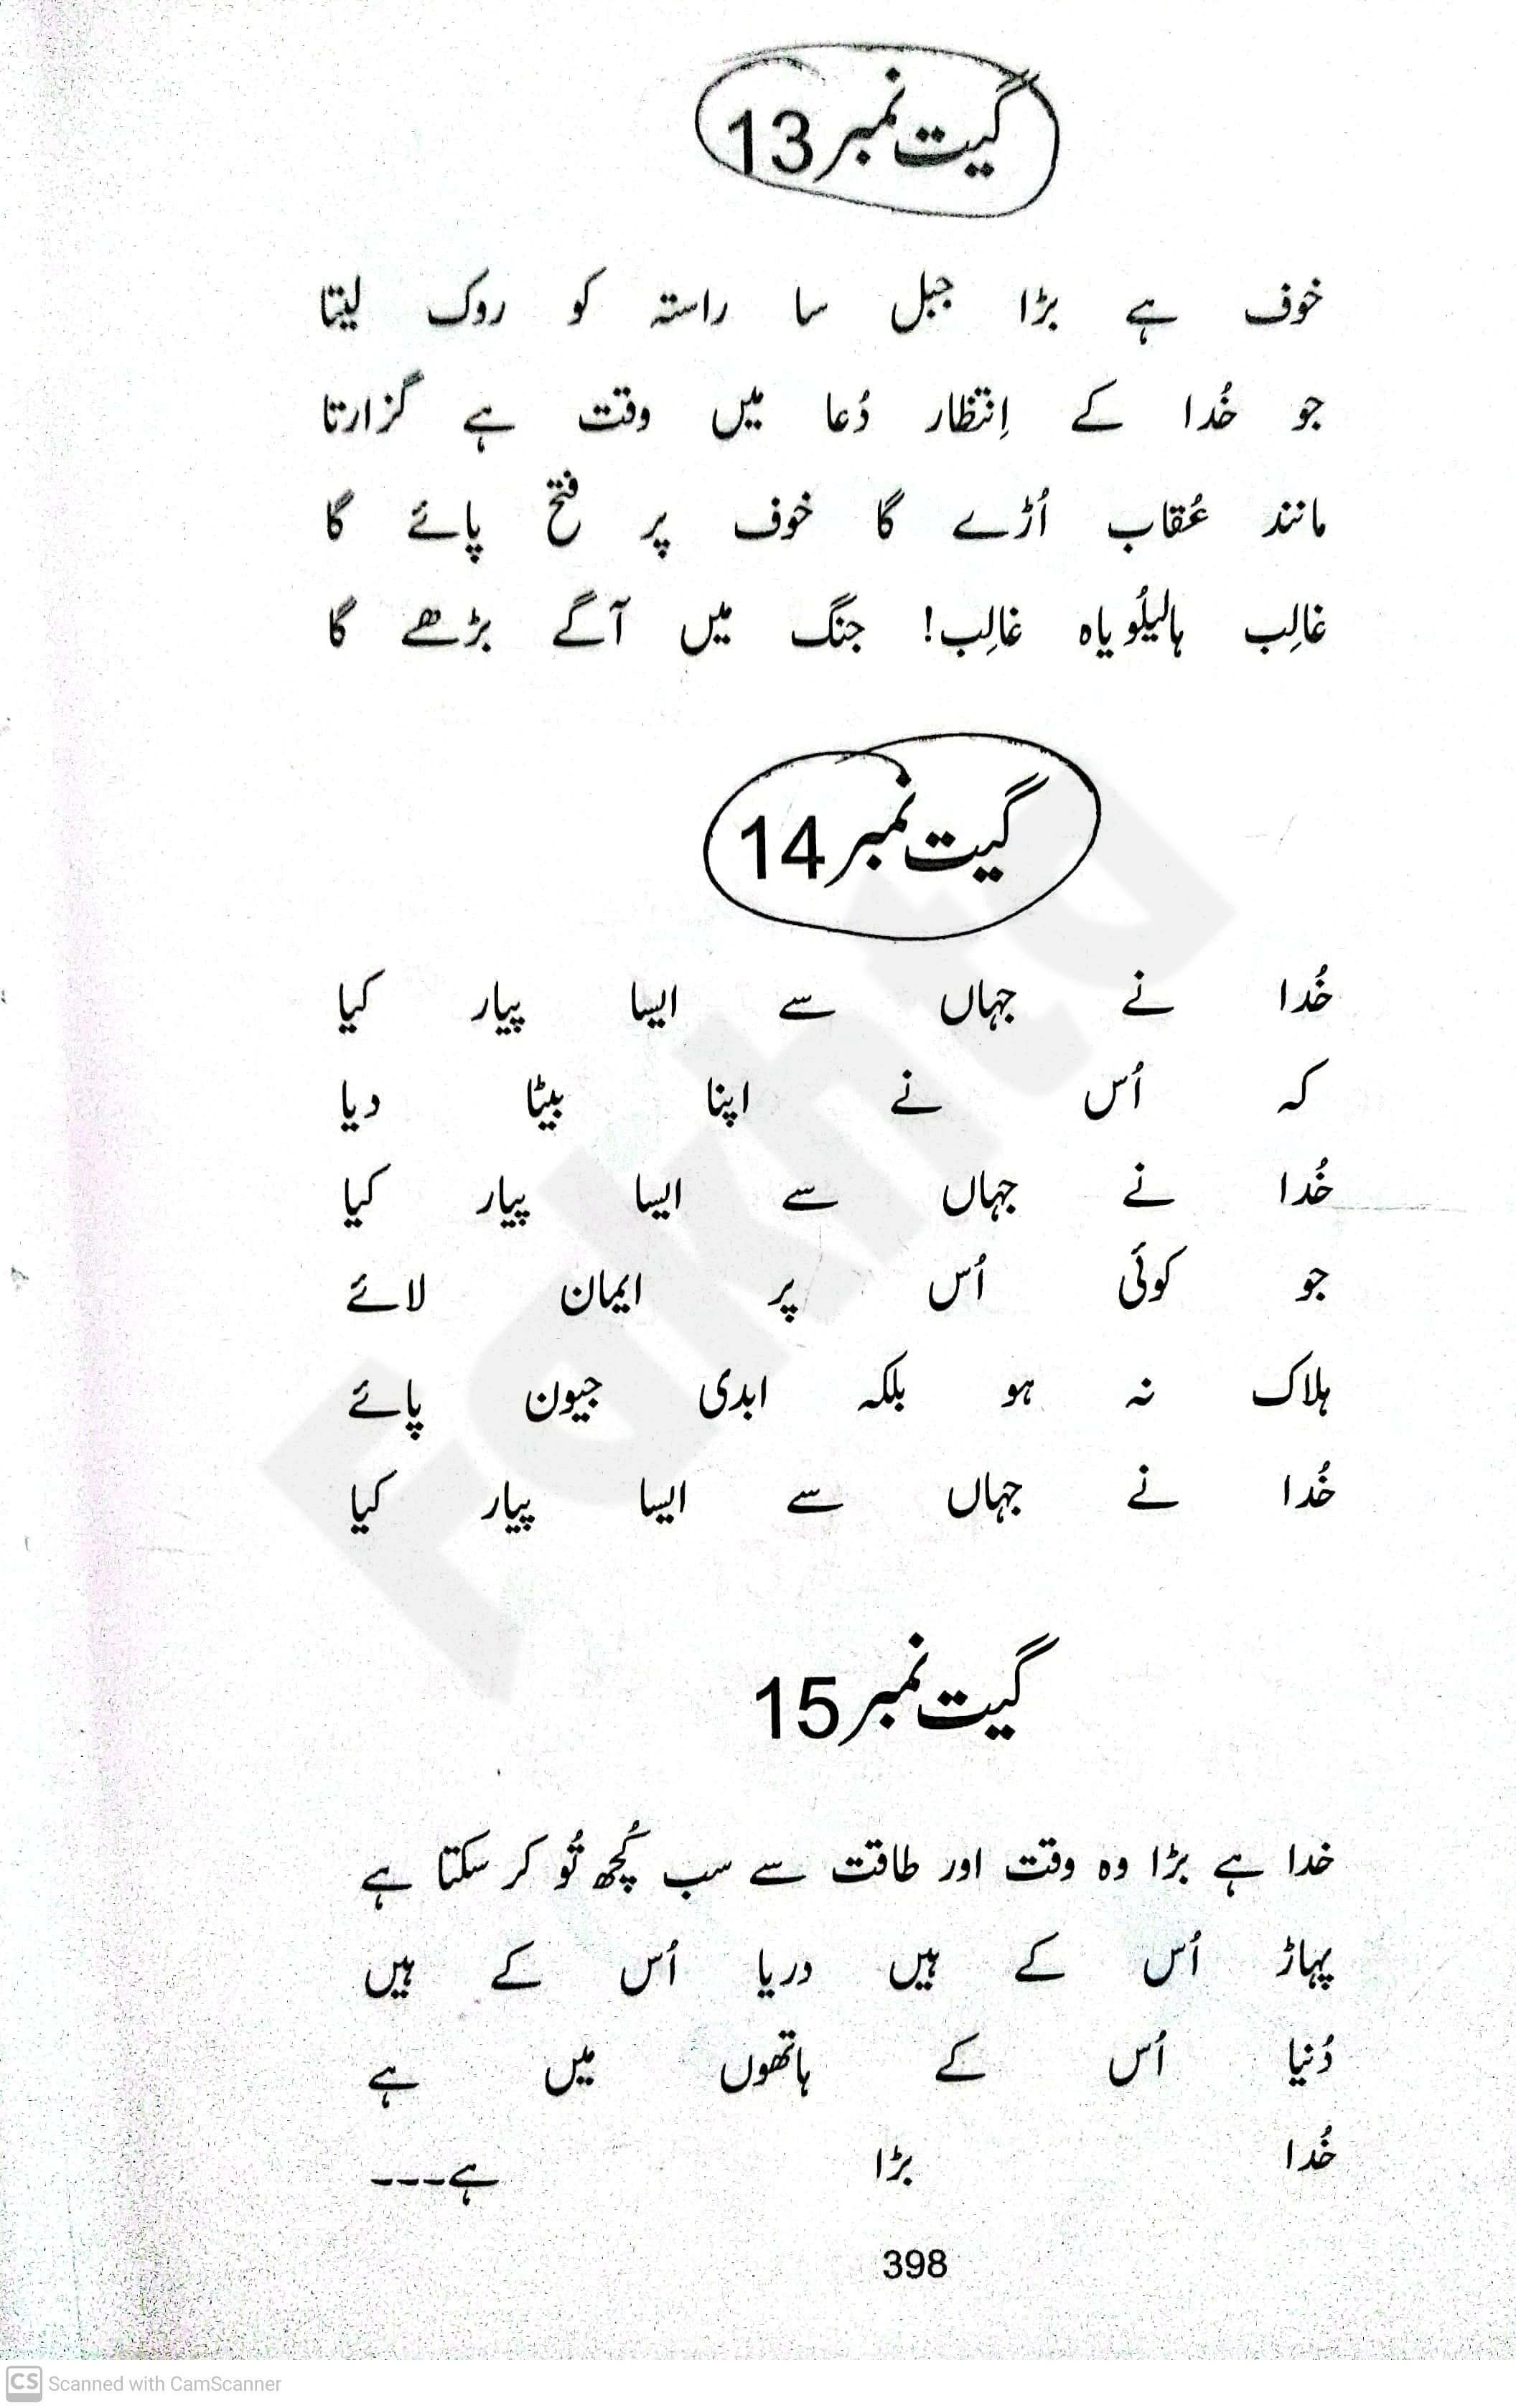 گیت نمبر 13
خوف ہے بڑا جبل سا راستہ کو روک لیتا
جو خُدا کے اِنتظار دُعا میں وقت ہے گزارتا
مانند عُقاب اُڑے گا خوف پر فتح پائے گا
غالِب ہالیلُویاہ غالِب! جنگ میں آگے بڑھے گا
گیت نمبر 14
خُدا نے جہاں سے ایسا پیار کیا
کہ اُس نے اپنا بیٹا دیا
خُدا نے جہاں سے ایسا پیار کیا
جو کوئی اُس پر ایمان لائے
ہلاک نہ ہو بلکہ ابدی جیون پائے
خُدا نے جہاں سے ایسا پیار کیا
Fakhta
گیت نمبر 15
خدا ہے بڑا وہ وقت اور طاقت سے سب کُچھ تُو کر سکتا ہے
پہاڑ اُس کے ہیں دریا اُس کے ہیں
دُنیا اُس کے ہاتھوں میں ہے
خُدا بڑا ہے---
398
CS Scanned with CamScanner